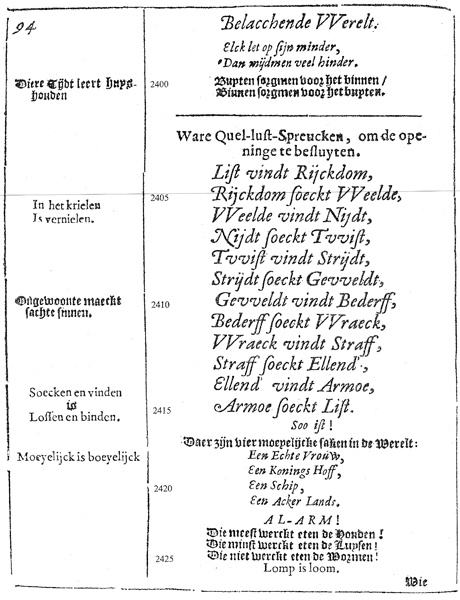 94
Belacchende VVerelt.
Elck let op sijn minder,
Dan mijdmen veel hinder.
Diere Tijdt leert huys-
houden
2400
Buyten sorgmen voor het binnen /
Binnen sorgmen voor het buyten.
Ware Quel-lust-Spreucken, om de ope-
ninge te besluyten.
List vindt Rijckdom,
2405
Rijckdom soeckt VVeelde,
In het krielen
Is vernielen.
VVeelde vindt Nijdt,
Nijdt soeckt Tvvist,
Tvvist vindt Strijdt,
Strijdt soeckt Gevveldt,
Ongewoonte maeckt
sachte sinnen.
2410
Gevveldt vindt Bederff,
Bederff soeckt VVraeck,
VVraeck vindt Straff,
Straff soeckt Ellend',
Soecken en vinden
is
Lossen en binden.
Ellend' vindt Armoe,
2415
Armoe soeckt List.
Soo ist!
Daer zijn vier moeyelijcke saken in de Werelt:
Moeyelijck is boeyelijck
Een Echte Vrouw,
Een Konings Hoff,
2420
Een Schip,
Een Acker Lands.
AL-ARM!
Die meest werckt eten de Honden!
Die minst werckt eten de Luysen!
2425
Die niet werckt eten de Wormen!
Lomp is loom.
Wie